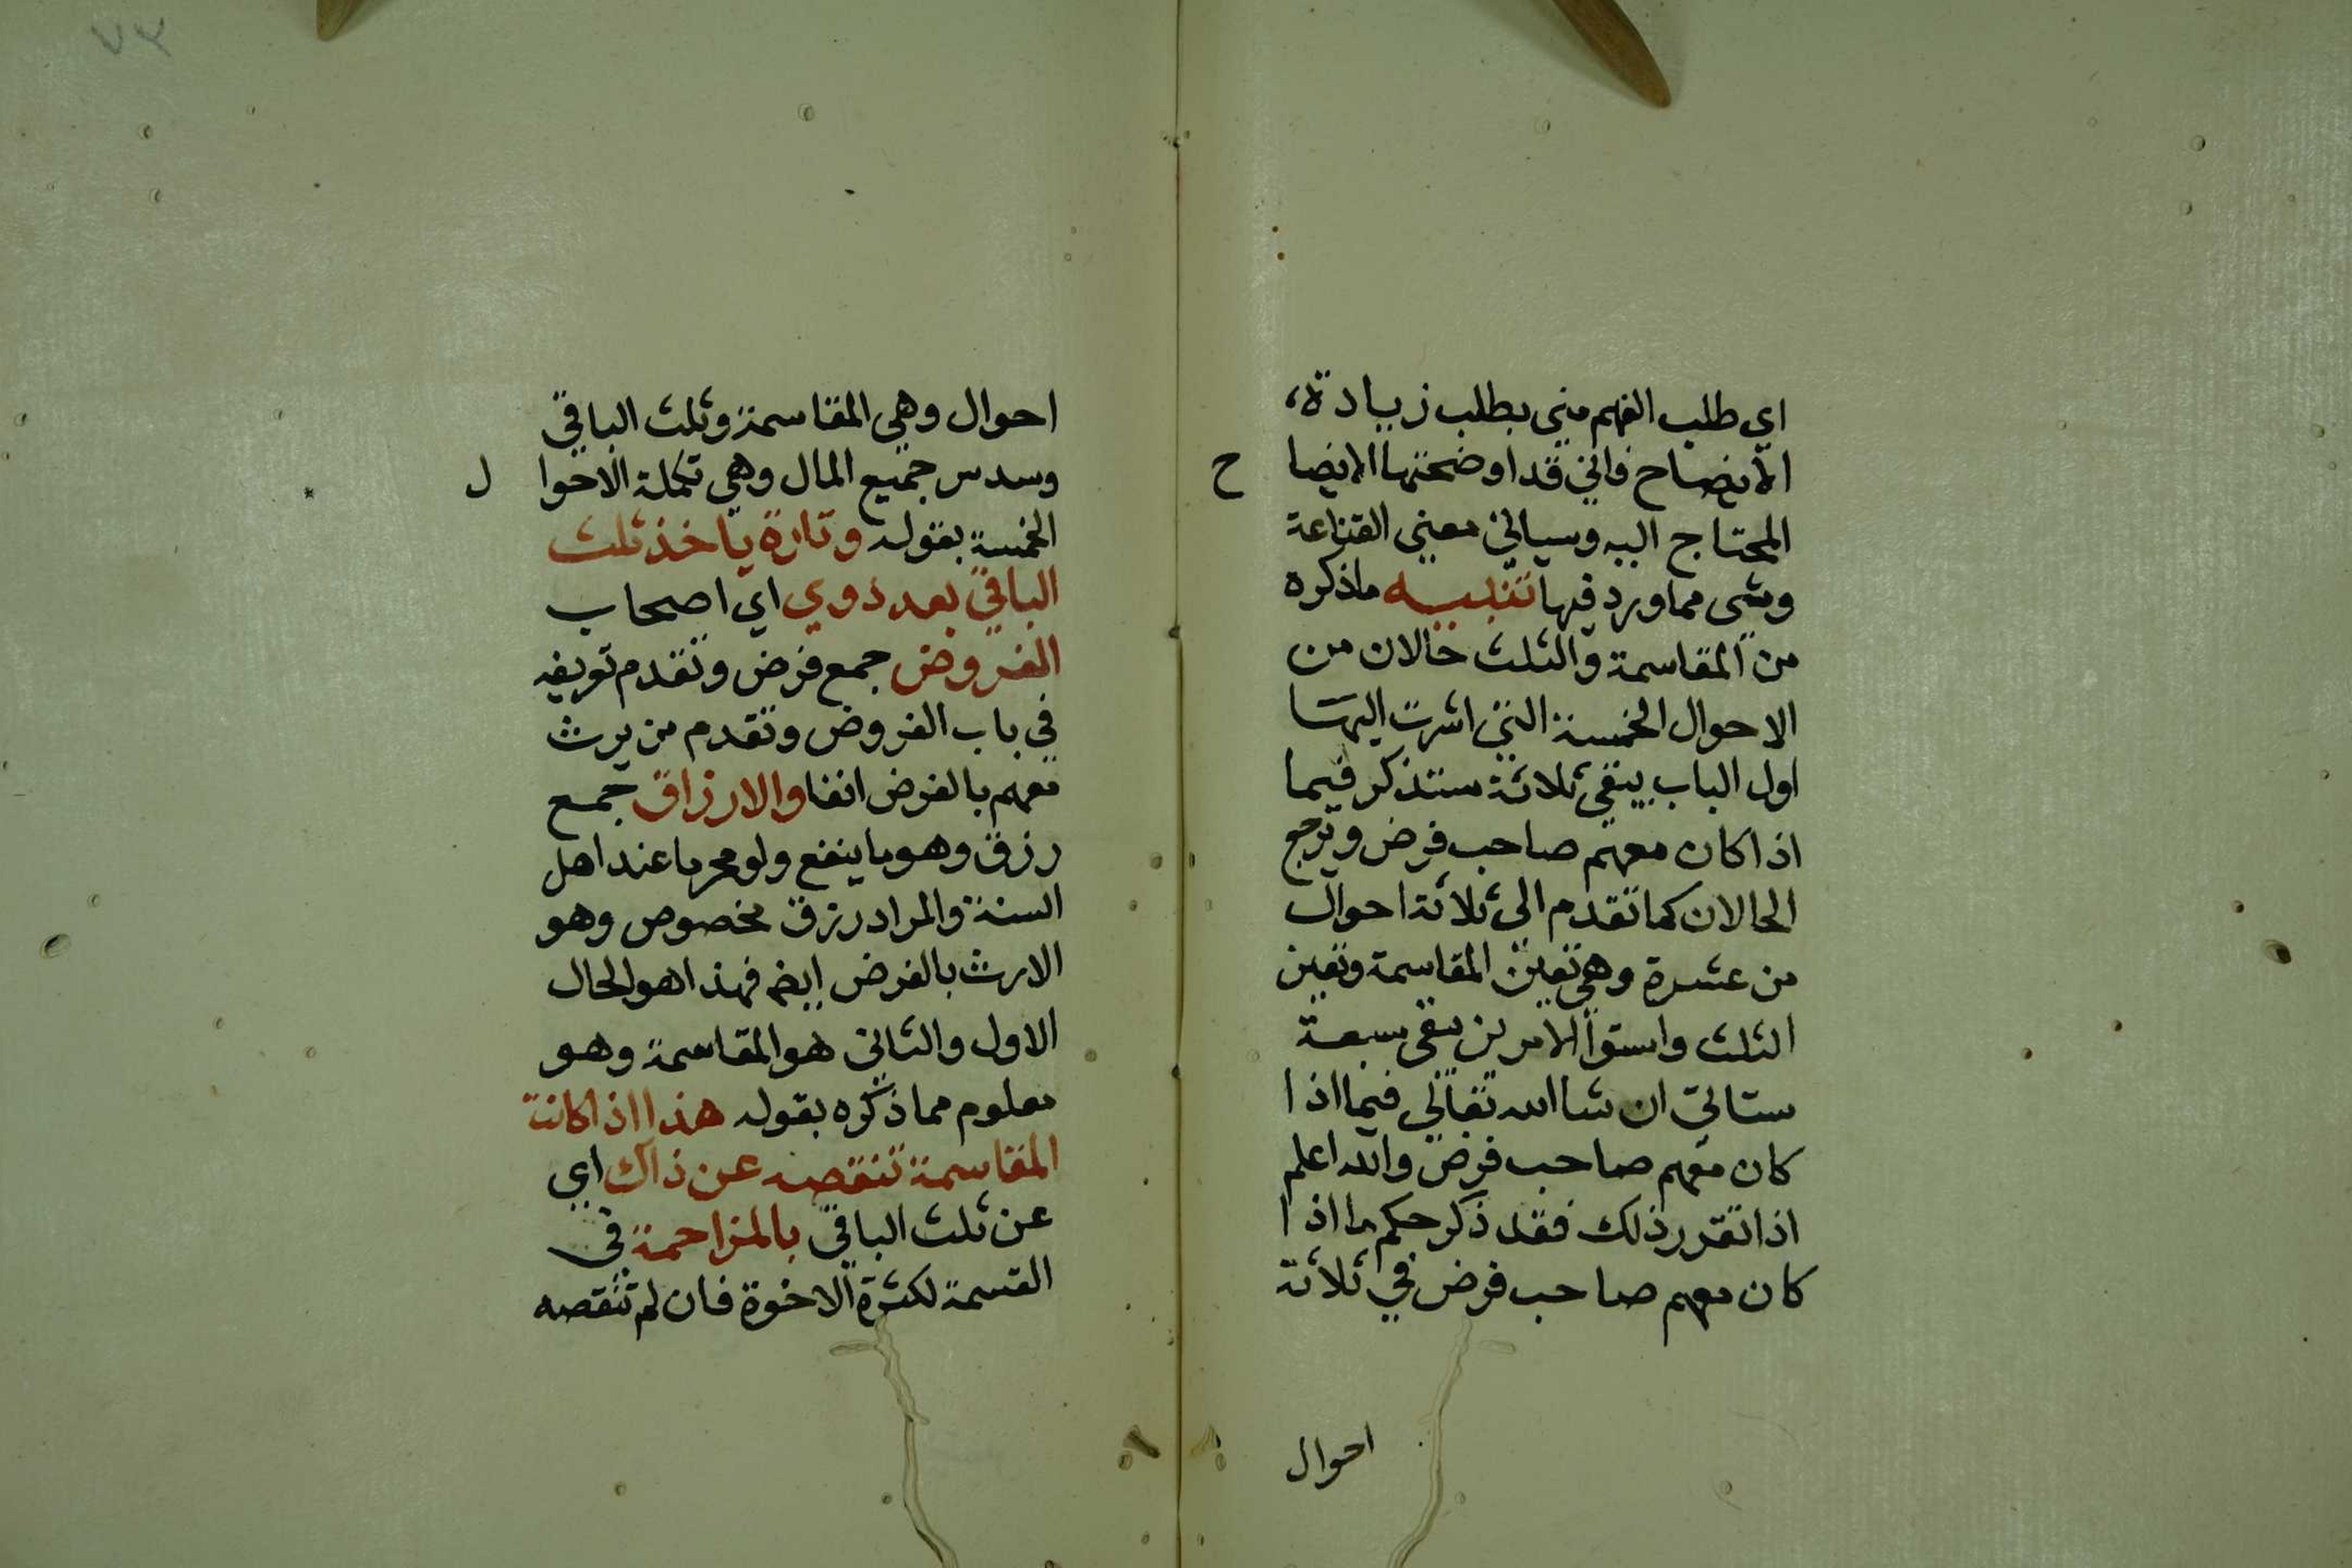 اي طلب الفهم مني بطلب زيادة،
الايضاح فاني قد اوضحتها الايضا ح
المحتاج اليه وسياتي معنى القناعة
وشى مما ورد فيها تنبيه ماذكره
من المقاسمة والثلث حالان من
الاحوال الخمسة التي اشرت اليها
اول الباب يبقى ثلاثة ستذكر فيما
اذا كان معهم صاحب فرض وترجع
الحالان كما تقدم الى ثلاثة احوال
من عشرة وهي تعين المقاسمة وتعين
الثلث واستوا الامرين يبقى سبعة
ستاتي ان شا الله تعالى فيما اذا
كان معهم صاحب فرض والله اعلم
اذا تقرر ذلك فقد ذكر حكم ما اذا
كان معهم صاحب فرض في ثلاثة
احوال
٧٣
احوال وهي المقاسمة وثلث الباقي
وسدس جميع المال وهي تكملة الاحوا ل
الخمسة بقوله وتارة ياخذ ثلث
الباقي بعد ذوي اي اصحاب
الفروض جمع فرض وتقدم تعريفه
في باب الفروض وتقدم من يرث
معهم بالفرض انفا والارزاق جمع
رزق وهو ما ينفع ولو محرما عند اهل
السنة والمراد رزق مخصوص وهو
الارث بالفرض ايضا فهذا هو الحال
الاول والثاني هو المقاسمة وهو
معلوم مما ذكره بقوله هذا اذا كانت
المقاسمة تنقصه عن ذاك اي
عن ثلث الباقي بالمزاحمة في
القسمة لكثرة الاخوة فان لم تنقصه